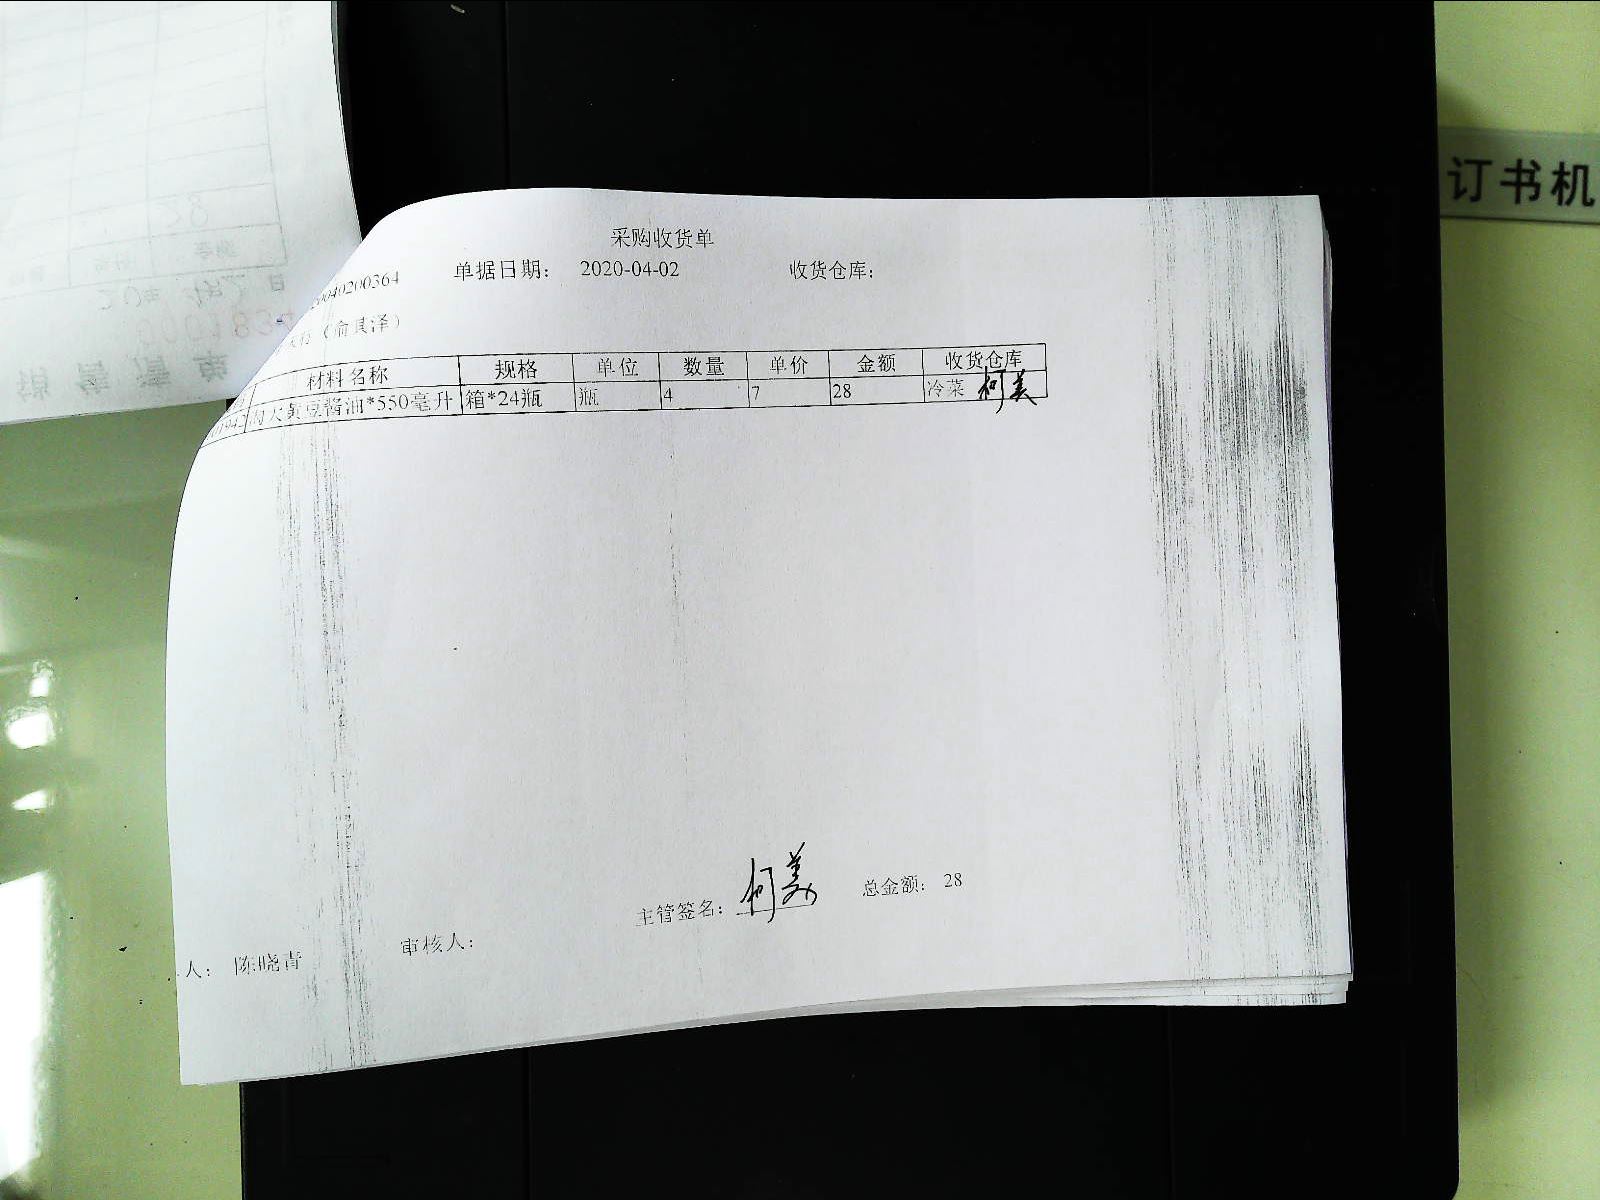 订书机
采购收货单
20040200364 单据日期： 2020-04-02 收货仓库：
（俞其泽）
材料名称 规格 单位 数量 单价 金额 收货仓库
黄豆酱油*550毫升 箱*24瓶 瓶 4 7 28 冷菜 何美
主管签名： 何美 总金额： 28
人： 陈晓青 审核人：